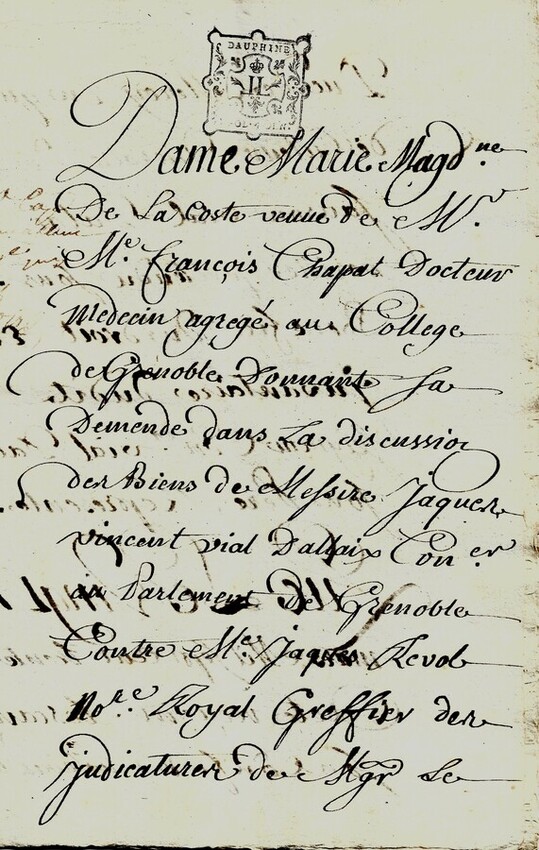 DAUPHINÉ
II
Dame Marie Magd.ne
De La Coste veuue de Mr.
Me. françois Chapat Docteur
Medecin agregé au College
de Grenoble Donnant Sa
Demende dans La discussion
des Biens de Messire Jaques
vincent vial Dallaix Con.er
au Parlement De Grenoble
Contre Me. Jaques Revol
No.re Royal Greffier des
judicatures de Mgr Le